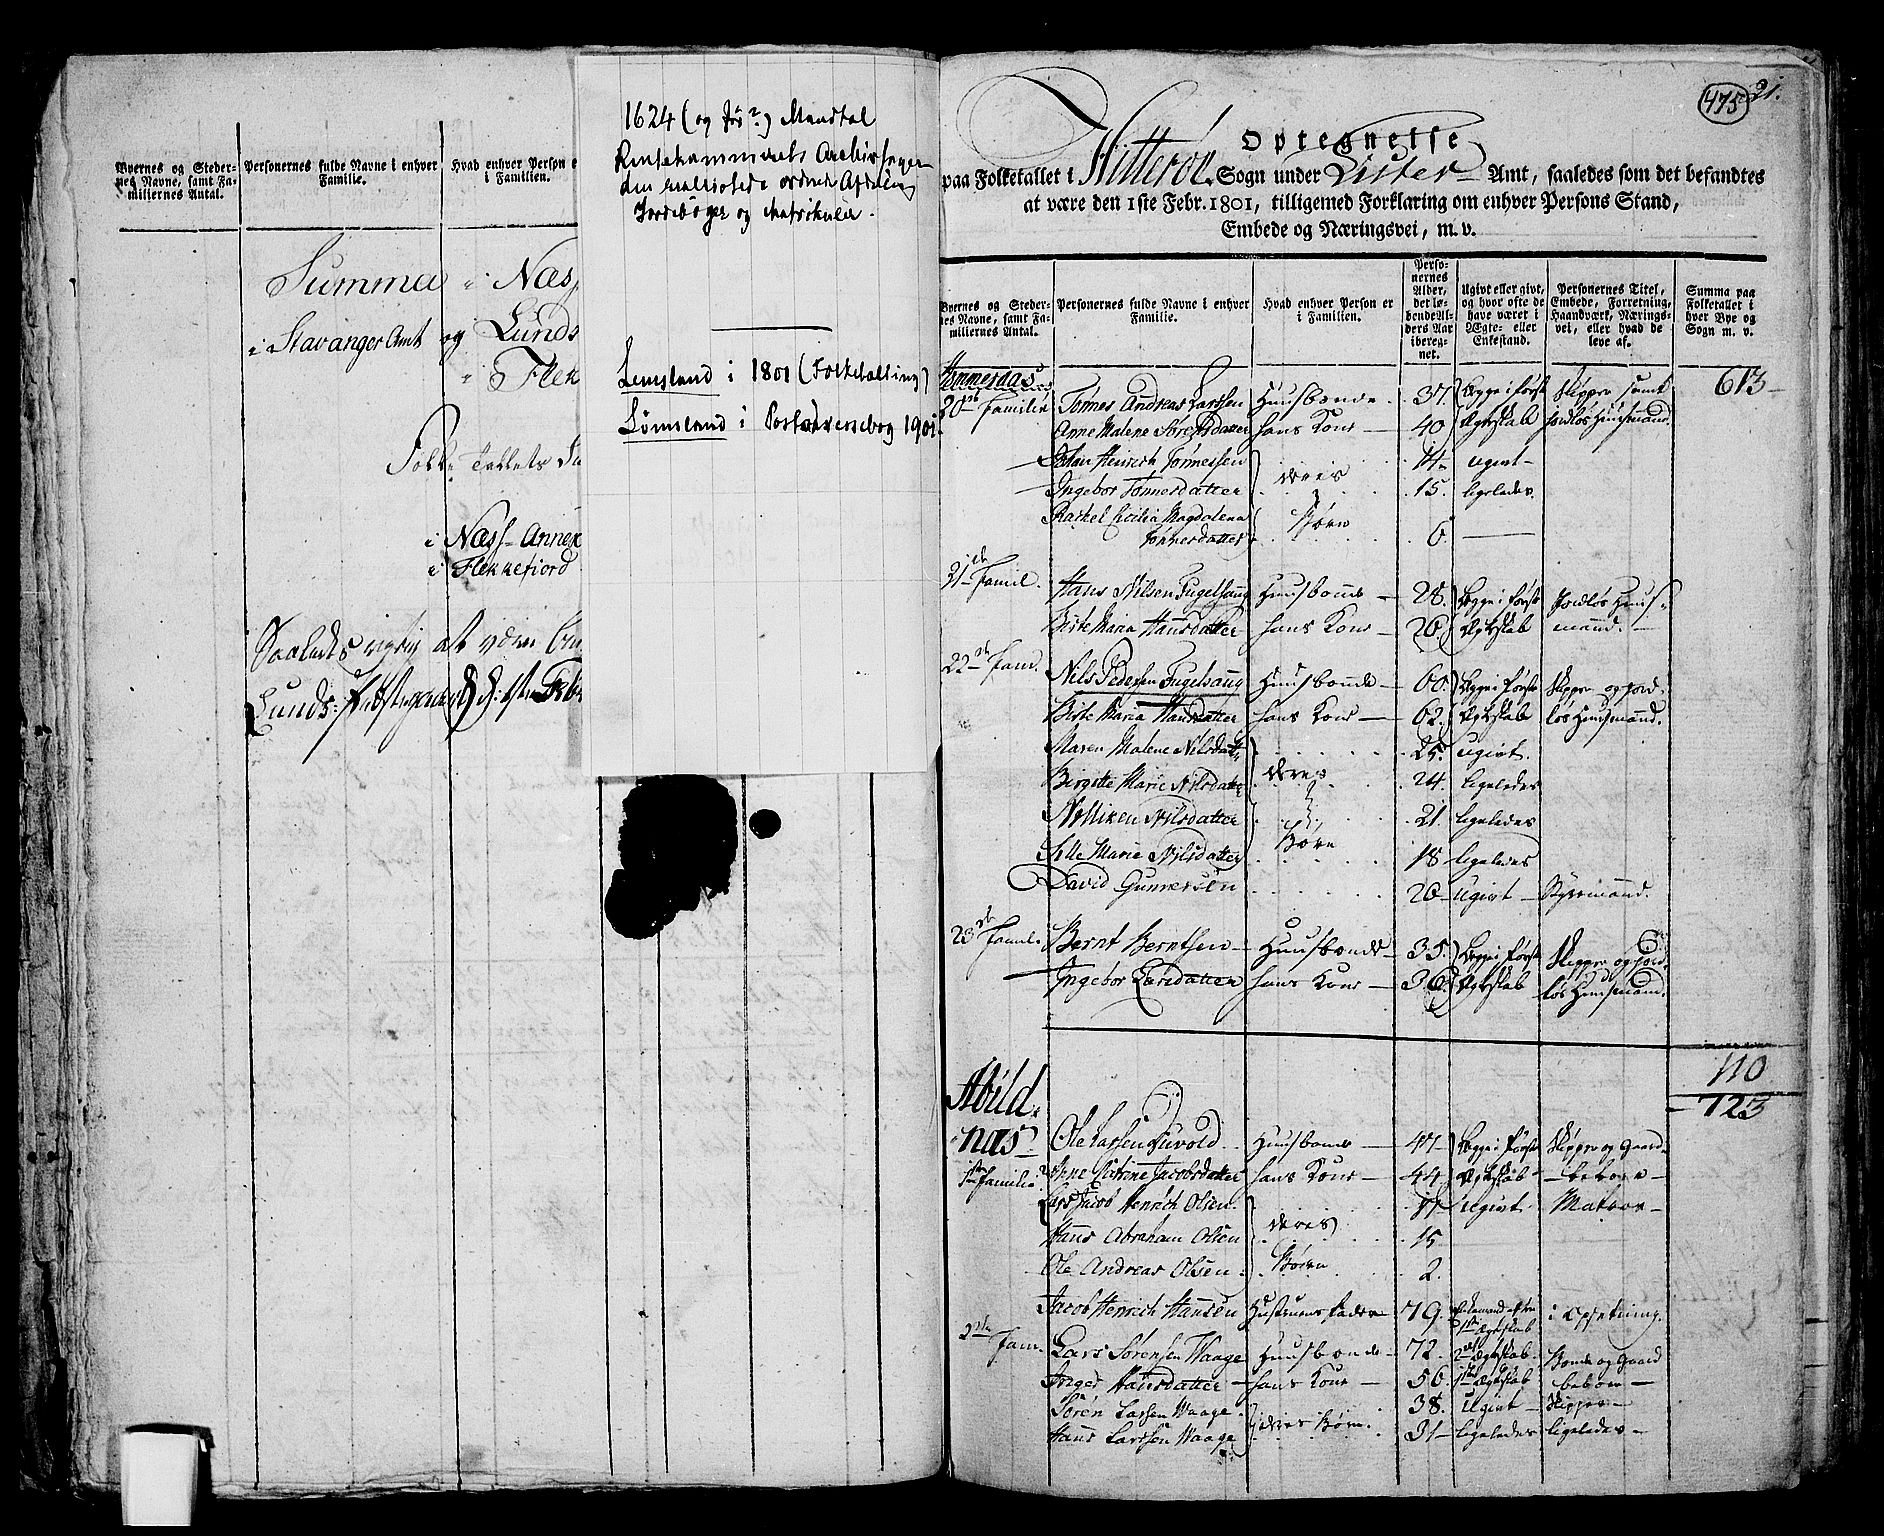 Byernes og Steder-
nes Navne, samt Fa-
miliernes Antal.
Personernes fulde Navne i enhver
Familie.
Hvad enhver Person e
i Familien.
Summa i Næs
i Stavanger Amt og Lunds
" Flek
Folke Tallets Su
i Næss Annex
i Flekkefiord
Saaledes rigtig at være
Lunds Febr
1624 (og før?) Mandtal
Rentekammerets Archivsager
den realistiske ordnede Afdeling
Jordebøger og Matrikuler.
Lemsland i 1801 (Folketælling)
Lømsland i Postadressebog 1901.
475 21.
Optegnelse
paa Folketallet i Hitterøe Sogn under Lister Amt, saaledes som det befandtes
at være den 1ste Febr. 1801, tilligemed Forklaring om enhver Persons Stand,
Embede og Næringsvei, m. v.
Byernes og Steder-
nes Navne, samt Fa-
miliernes Antal.
Personernes fulde Navne i enhver
Familie.
Hvad enhver Person er
i Familien.
Perso-
nernes
Alder,
det lø-
bende Al-
ders Aar
iberegnet.
Ugivt eller givt,
og hvor ofte de
have været i
Ægte- eller
Enkestand.
Personernes Titel,
Embede, Forretning,
Haandværk, Nærings-
vei, eller hvad de
leve af.
Summa paa
Folketallet i
hver Bye og
Sogn m. v.
613
20de Familie Tønnes Andreas Larssen Huusbonde 37 begge i første Skipper samt
Anne Malene Sørensdatter hans Kone 40 Ægteskab jordløs Huusmand
Johan Heinrich Tønnessen deres 17 ugivt
Ingebor Tønnesdatter 15. ligeledes
Rachel Cicilia Magdalena Børn
Tønnesdatter 6.
21de Famil. Hans Nilsen Fugelsang Huusbonde 28. begge i første Jordløs Huus-
Birte Maria Hansdatter hans Kone 20 Ægteskab mand.
22de Fam. Nils Pedersen Fugelsang Huusbonde 60. begge i første Skipper og jord-
Birte Maria Hansdatter hans Kone 62. Ægteskab løs Huusmand.
Maren Malene Nilsdatt. 25. ugivt.
Birgitte Marie Nilsdatter deres 24. ligeledes
Nilliken Nilsdatter 21. ligeledes
Sille Marie Nilsdatter Børn 18 ligeledes
David Gunnersen 20 Ugivt Styrmand.
23de Famil. Bernt Berntsen Huusbonde 35. begge i første Skipper og jord-
Ingebor Larsdatter hans Kone 36. Ægteskab løs Huusmand.
110
723
Abild-
nas Ole Larssen Huusbonde 47 begge i første Skipper og Gaard-
1ste Familie Anne Catrine Jacobsdatter hans Kone 44 Ægteskab beboer
Lars Jacob Henrich Olsen. 17 ugivt Matros
Hans Abraham Olsen deres 15
Ole Andreas Olsen. Børn 2.
Jacob Henrich Hansen Hustruens Fader 79. Enkemand efter i Opfostring.
1ste Ægteskab
2den Fam. Lars Sørensen Waage Huusbonde 72. 2det Ægteskab Bonde og Gaard
Inger Hansdatter hans Kone 56. 1ste Ægteskab beboer
Søren Larssen Waage. deres Børn. 38. Ugivt Skipper
Hans Larssen Waage 31 ligeledes ligeledes